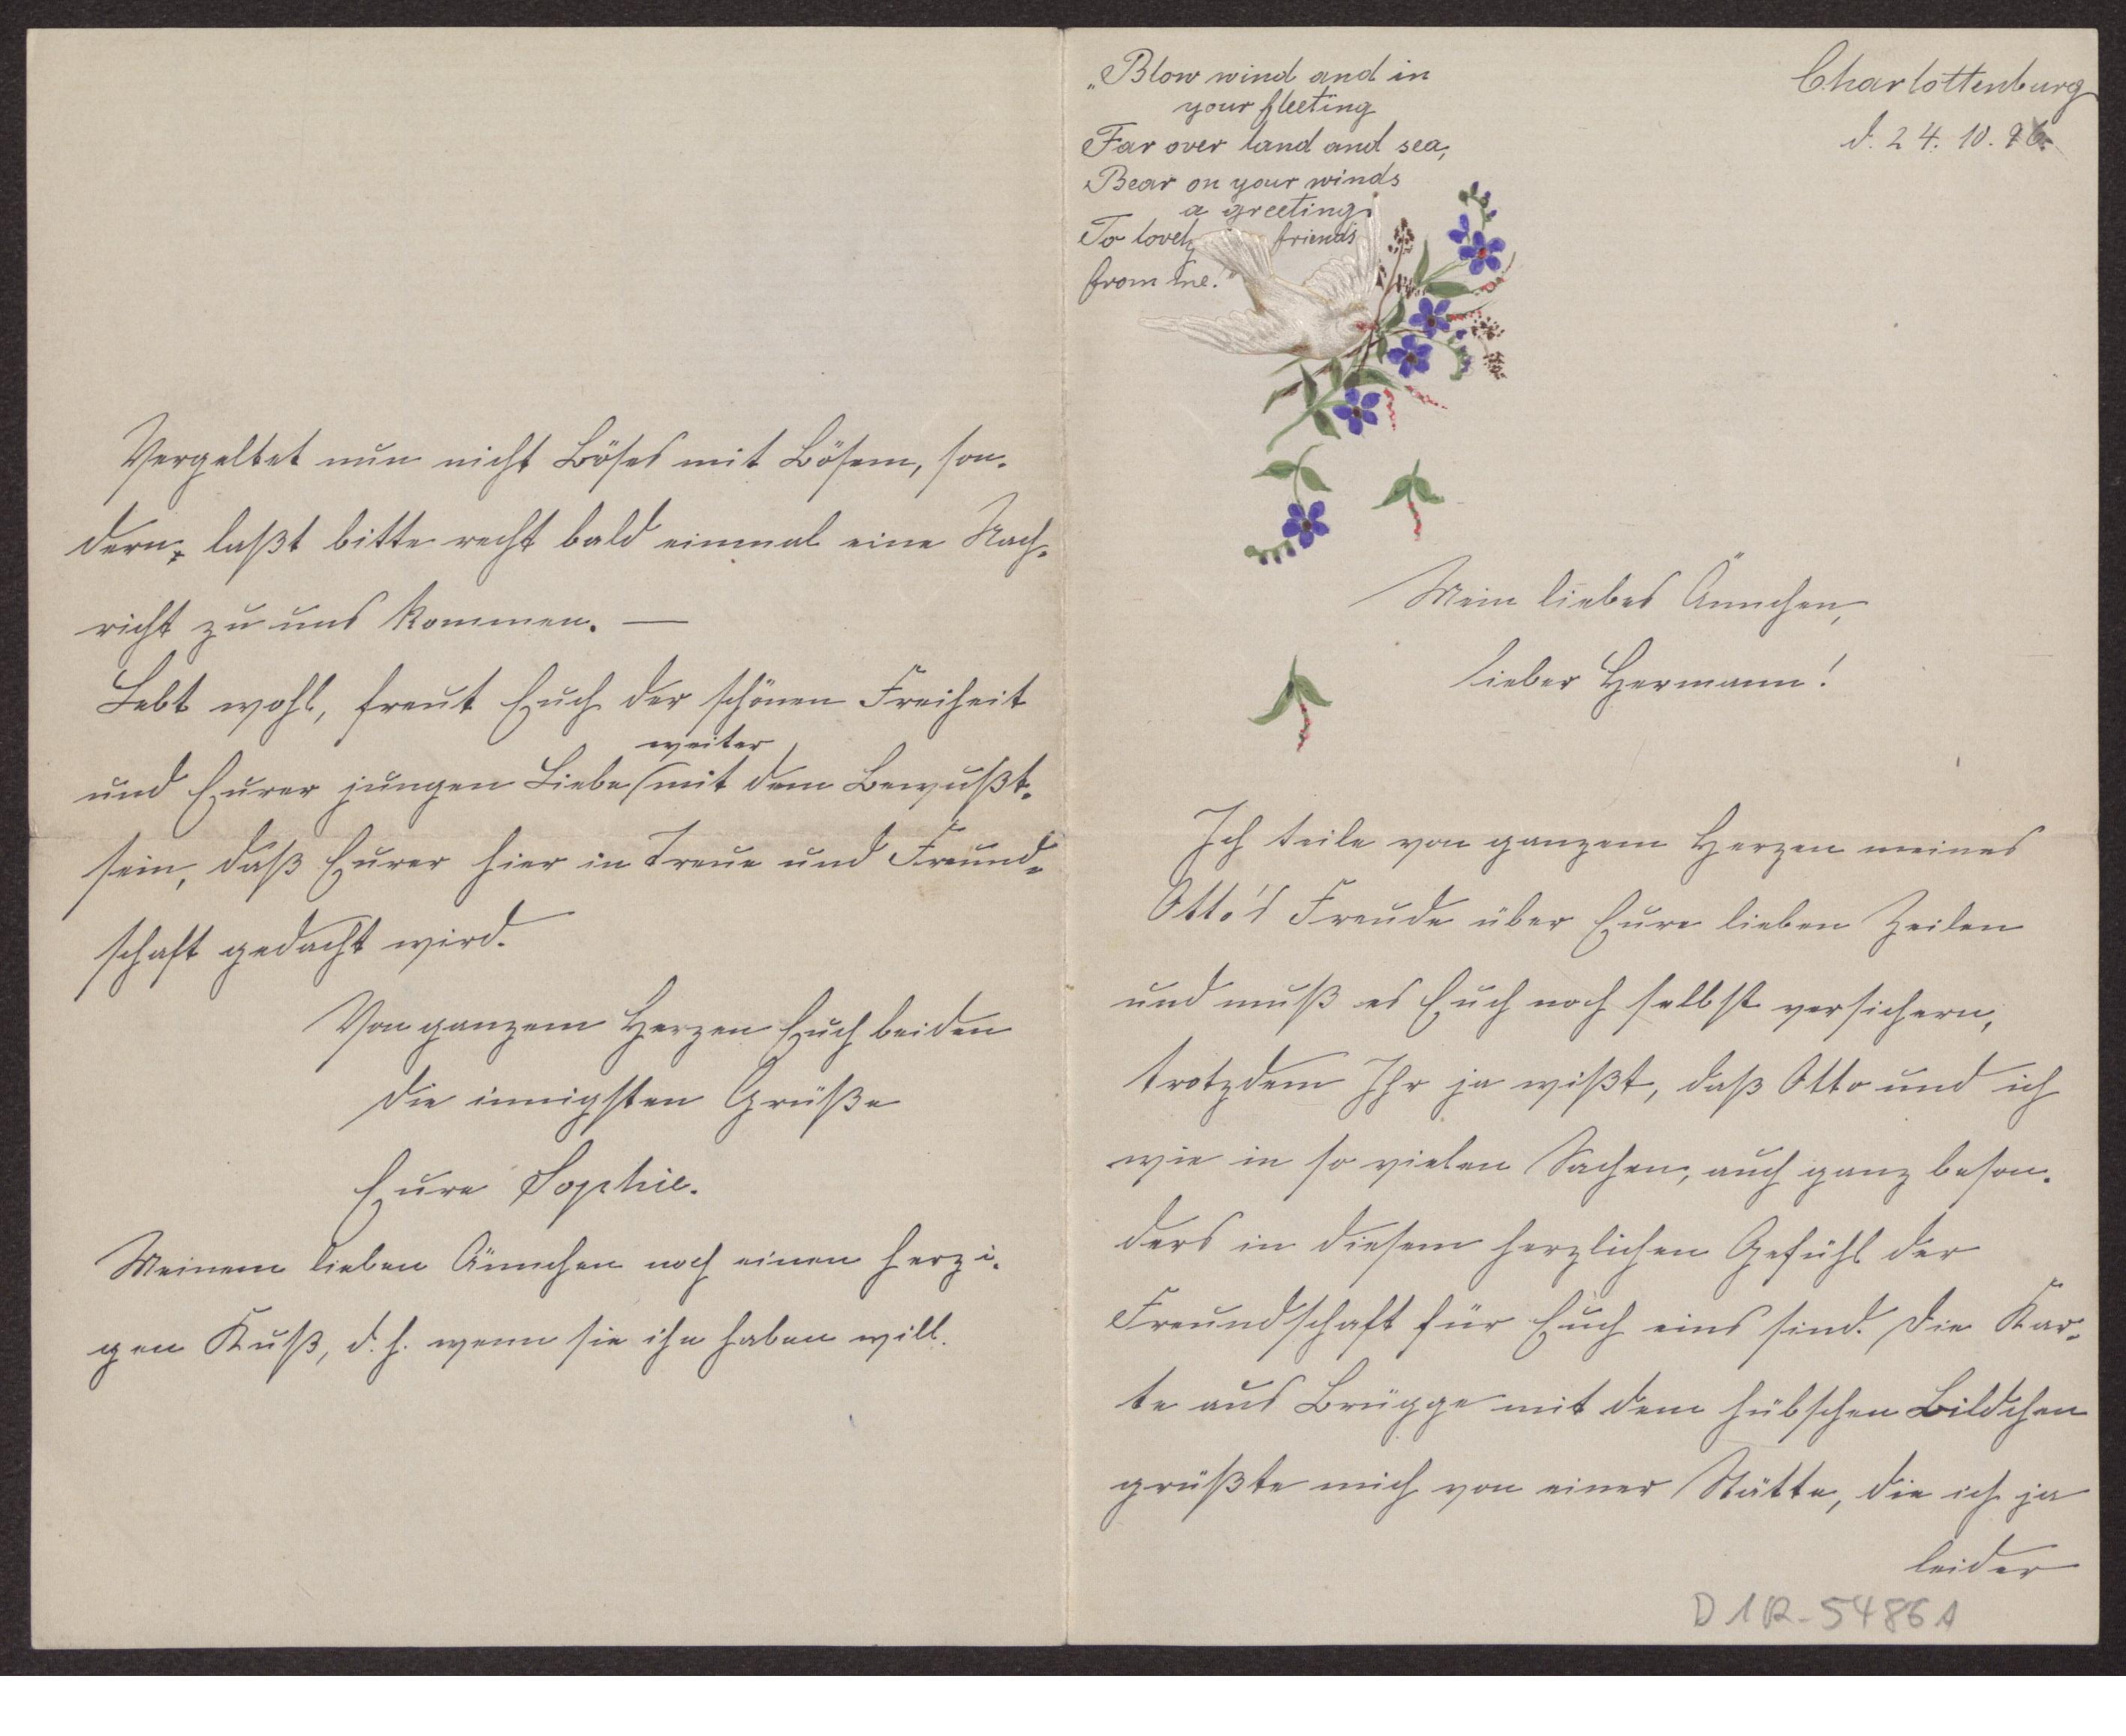 „Blow wind and in
your fleeting
Far over land and sea,
Bear on your winds
a greeting
To lovely friends
from me!“
Charlottenburg
d. 24. 10. 96.
Mein liebes Ännchen,
lieber Hermann!
Ich teile von ganzem Herzen meines
Otto's Freude über Eure lieben Zeilen
und muß es Euch noch selbst versichern,
trotzdem Ihr ja wißt, daß Otto und ich
wie in so vielen Sachen, auch ganz beson-
ders in diesem herzlichen Gefühl der
Freundschaft für Euch eins sind. Die Kar-
te aus Brügge mit dem hübschen Bildchen
grüßte mich von einer Stätte, die ich ja
leider
D 1R-5486 A
Vergeltet nun nicht Böses mit Bösem, son-
dern, laßt bitte recht bald einmal eine Nach-
richt zu uns kommen. —
Lebt wohl, freut Euch der schönen Freiheit
weiter
und Eurer jungen Liebe mit dem Bewußt-
sein, daß Eurer hier in Treue und Freund-
schaft gedacht wird.
Von ganzem Herzen Euch beiden
die innigsten Grüße
Eure Sophie.
Meinem lieben Ännchen noch einen herzi-
gen Kuß, d. h. wenn sie ihn haben will.